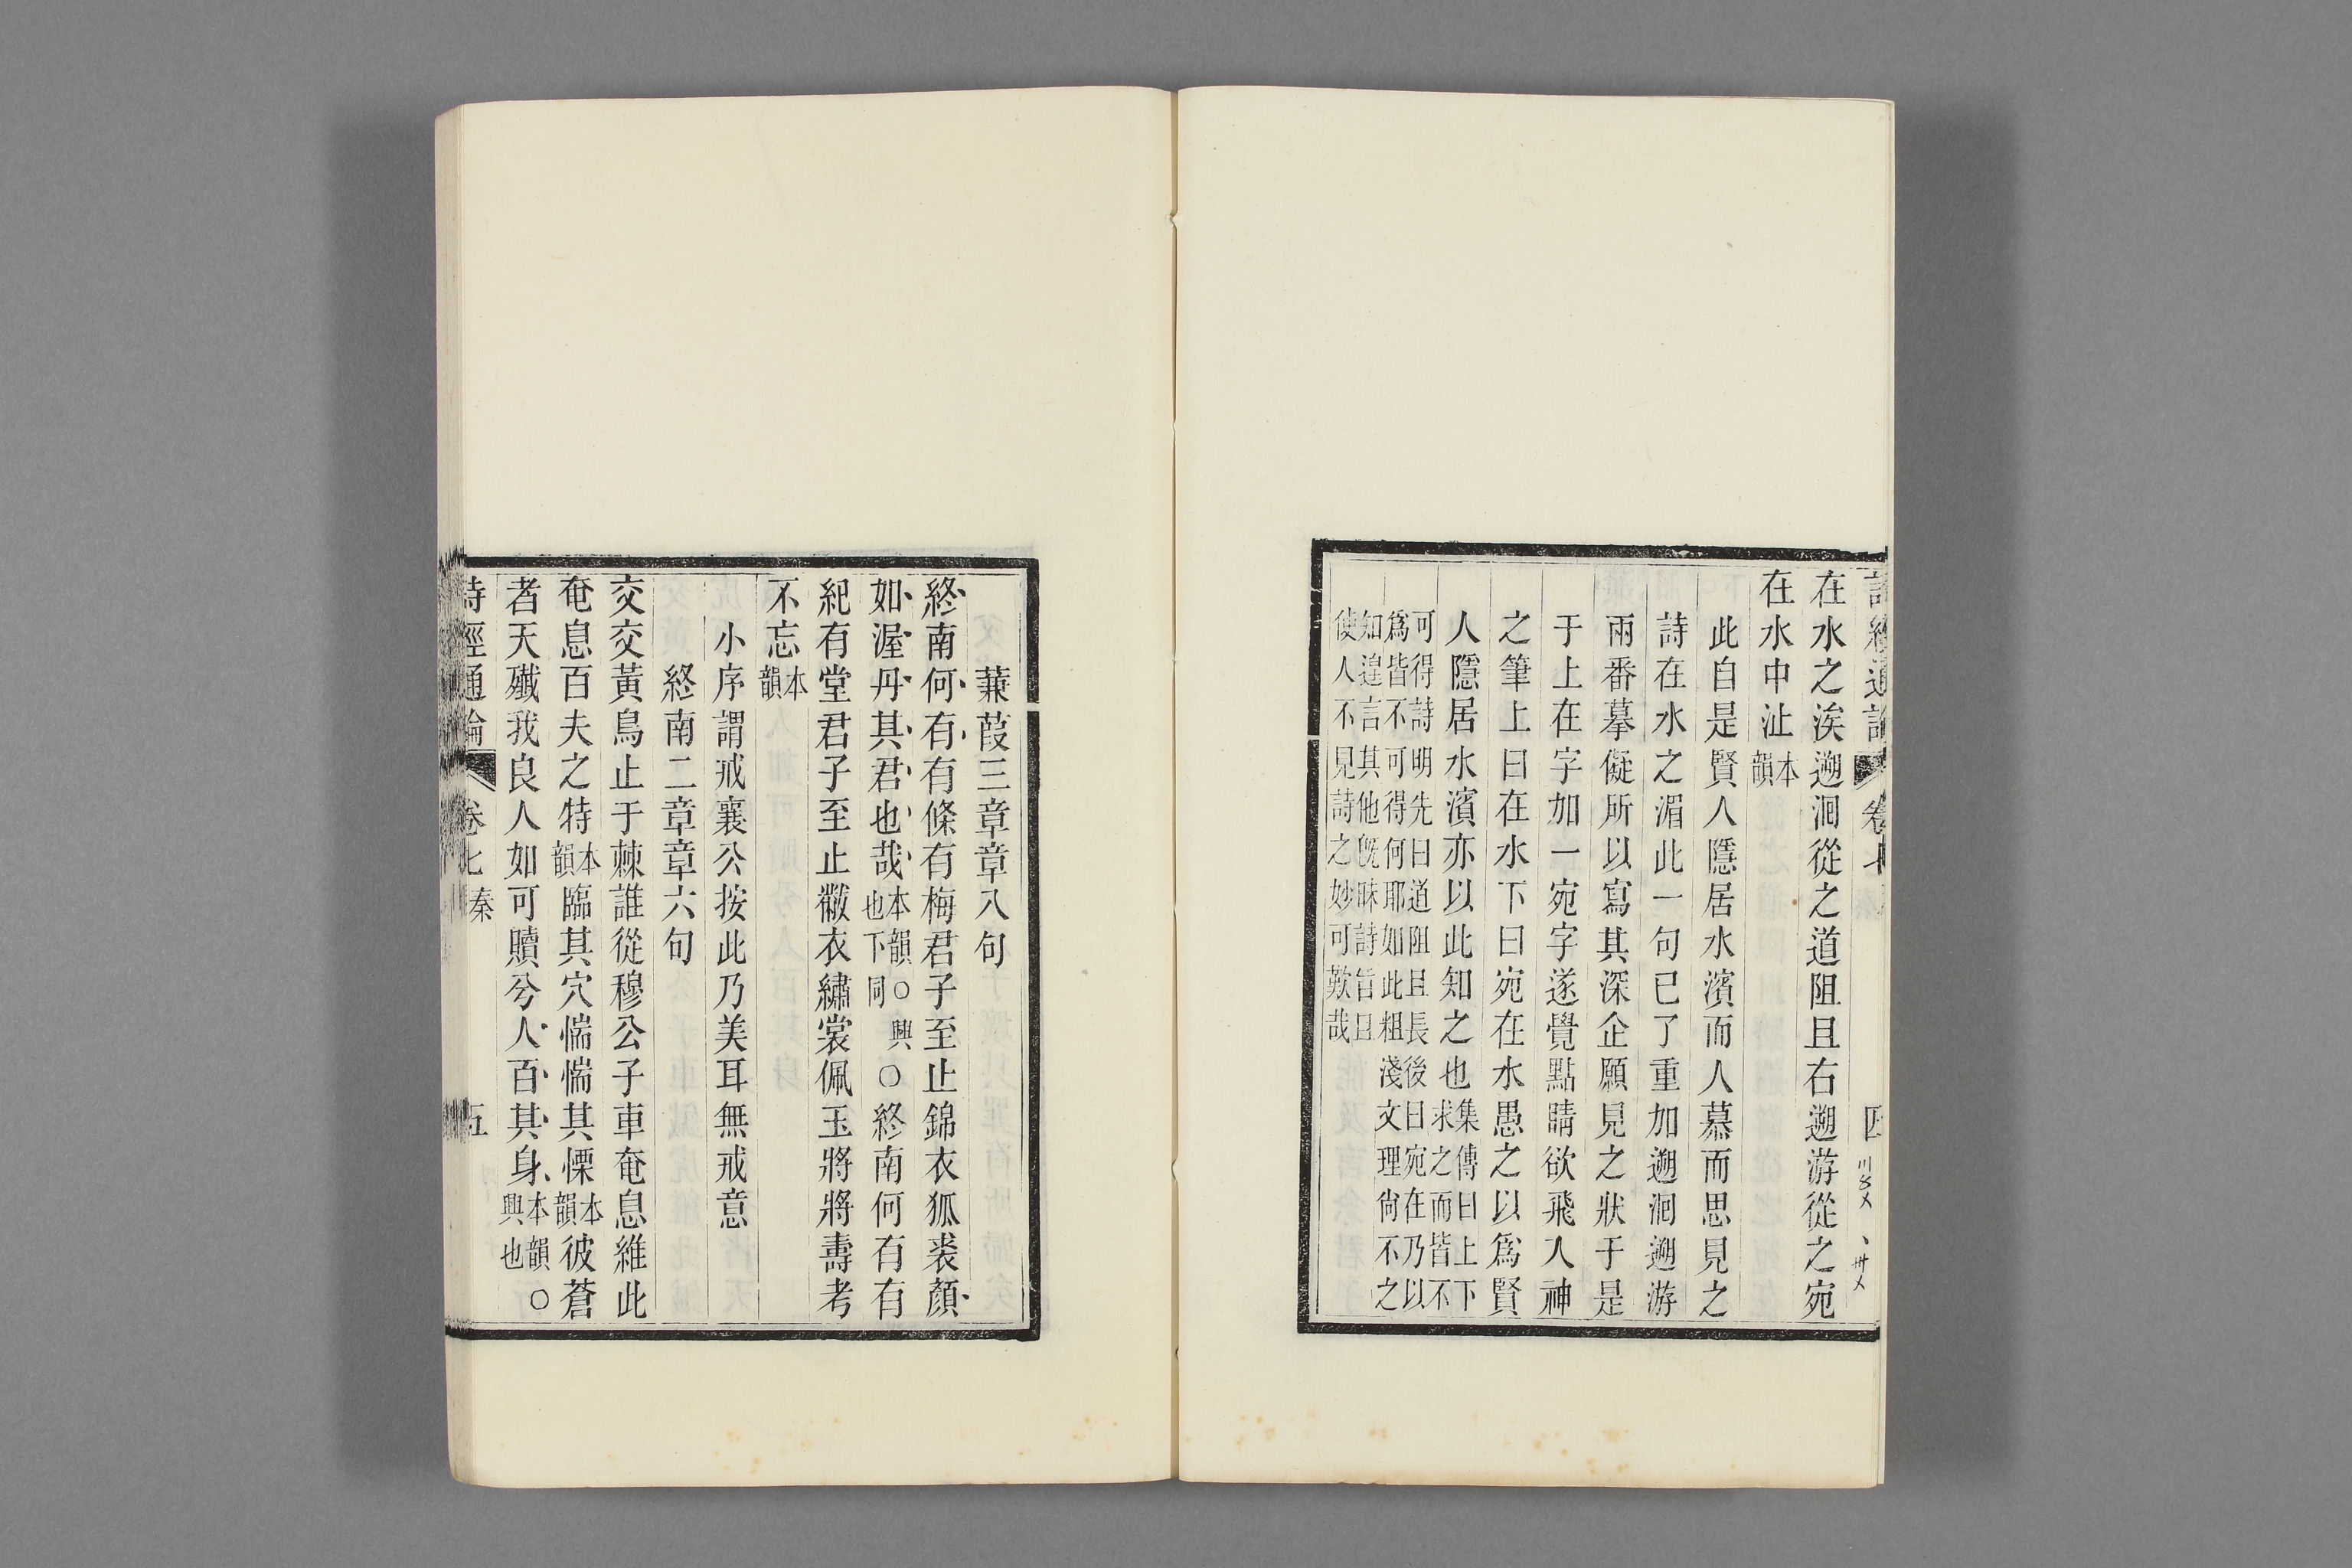 詩經通論 卷七 四
在水之涘遡洄從之道阻且右遡游從之宛
在水中沚本韻
此自是賢人隱居水濱而人慕而思見之
詩在水之湄此一句已了重加遡洄遡游
兩番摹儗所以寫其深企願見之狀于是
于上在字加一宛字遂覺點睛欲飛入神
之筆上曰在水下曰宛在水愚之以爲賢
人隱居水濱亦以此知之也集傳曰上下求之而皆不
可得詩明先曰道阻且長後曰宛在乃以爲皆不可得何耶如此粗淺文理尙不之
知遑言其他旣昧詩旨且使人不見詩之妙可歎哉
蒹葭三章章八句
終南何有有條有梅君子至止錦衣狐裘顏
如渥丹其君也哉本韻○興也下同○終南何有有
紀有堂君子至止黻衣繡裳佩玉將將壽考
不忘本韻
小序謂戒襄公按此乃美耳無戒意
終南二章章六句
交交黃鳥止于棘誰從穆公子車奄息維此
奄息百夫之特本韻臨其穴惴惴其慄本韻彼蒼
者天殲我良人如可贖兮人百其身本韻○興也
詩經通論 卷七 秦 五